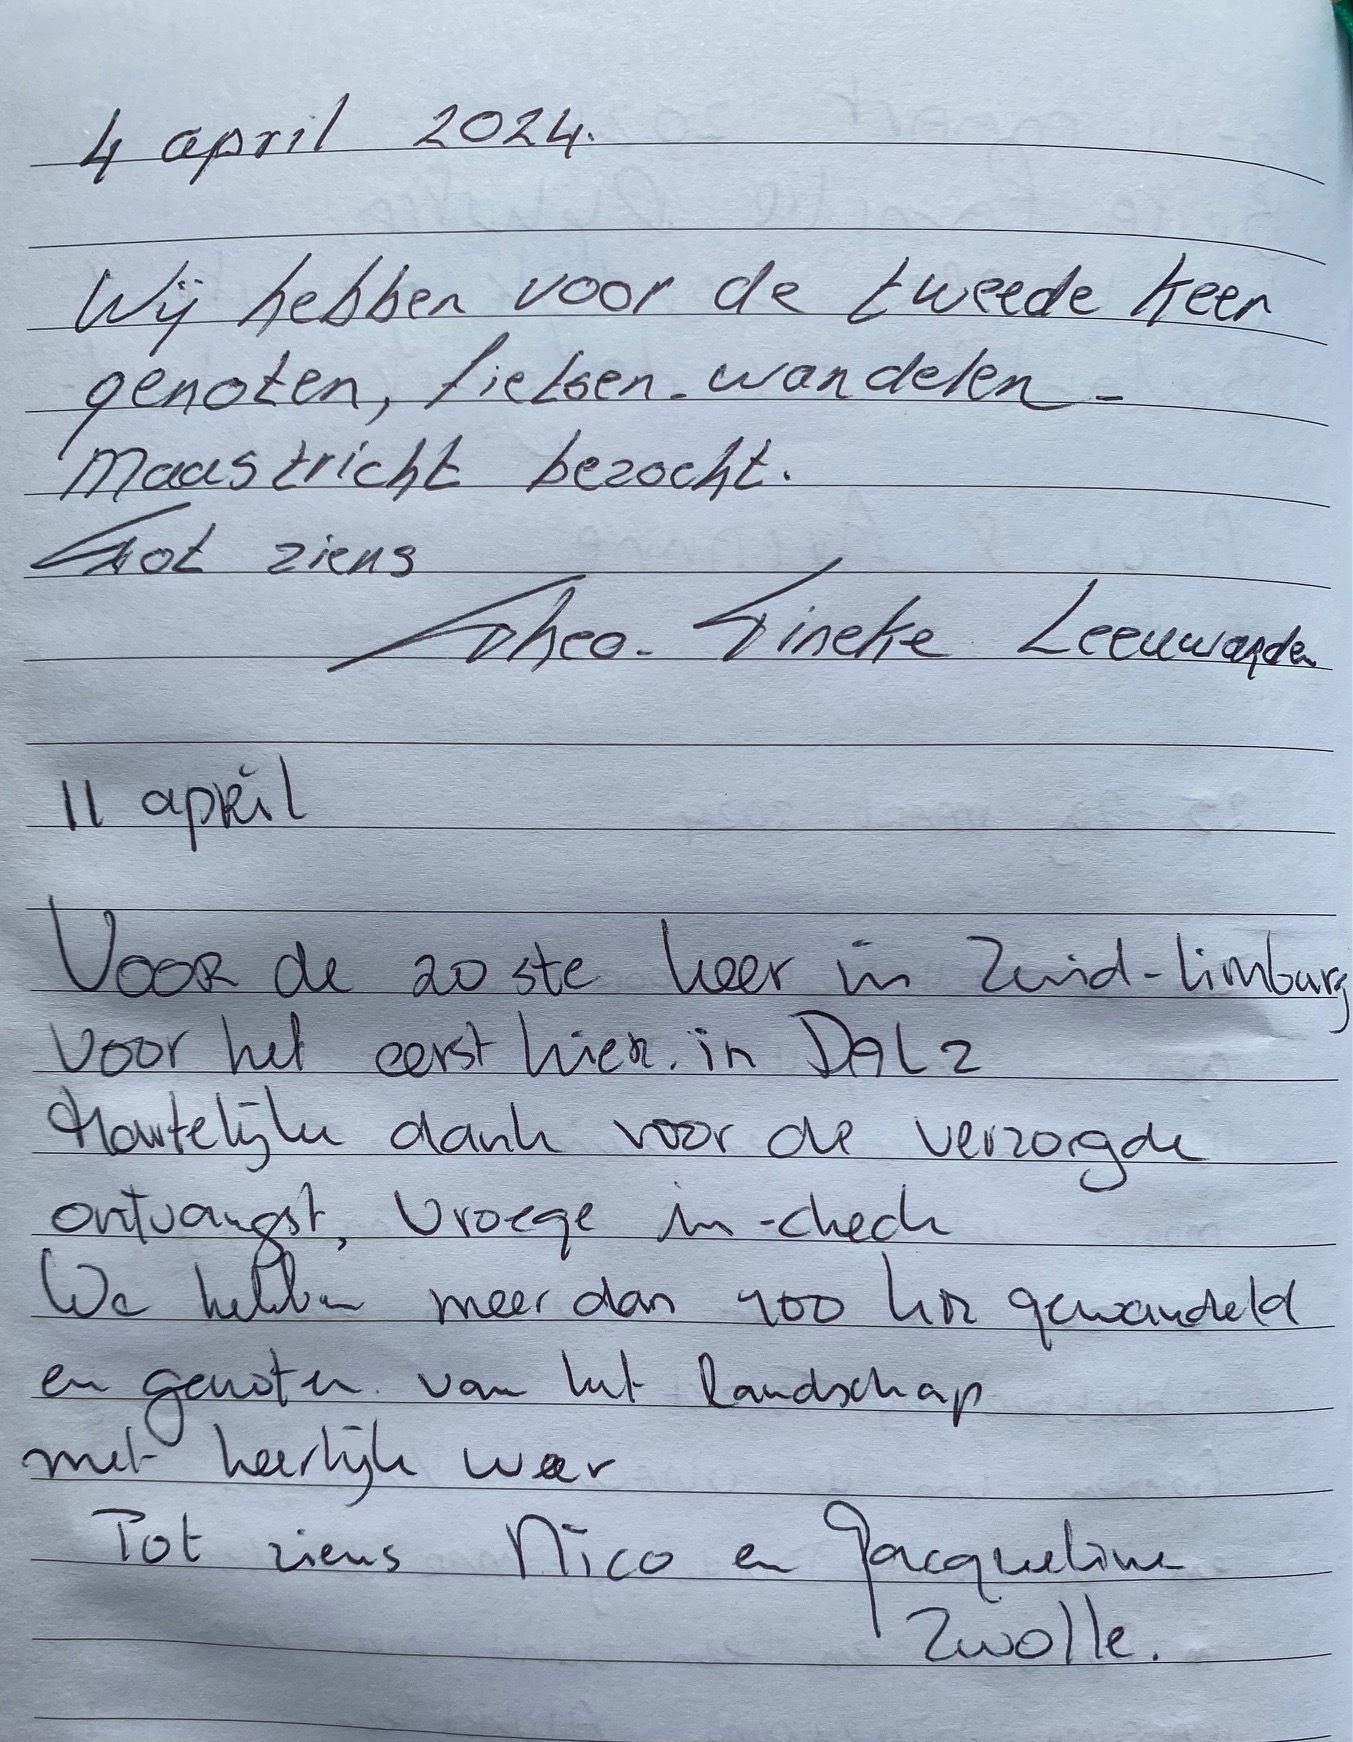 4 april 2024.
Wij hebben voor de tweede keer
genoten, fietsen - wandelen -
Maastricht bezocht.
Tot ziens
Theo - Tineke Leeuwarden
11 april
Voor de 20ste keer in Zuid-Limburg
voor het eerst hier in DAL 2
Hartelijke dank voor de verzorgde
ontvangst, vroege in-check
We hebben meer dan 100 km gewandeld
en genoten van het landschap
met heerlijk weer
Tot ziens Nico en Jacqueline
Zwolle.